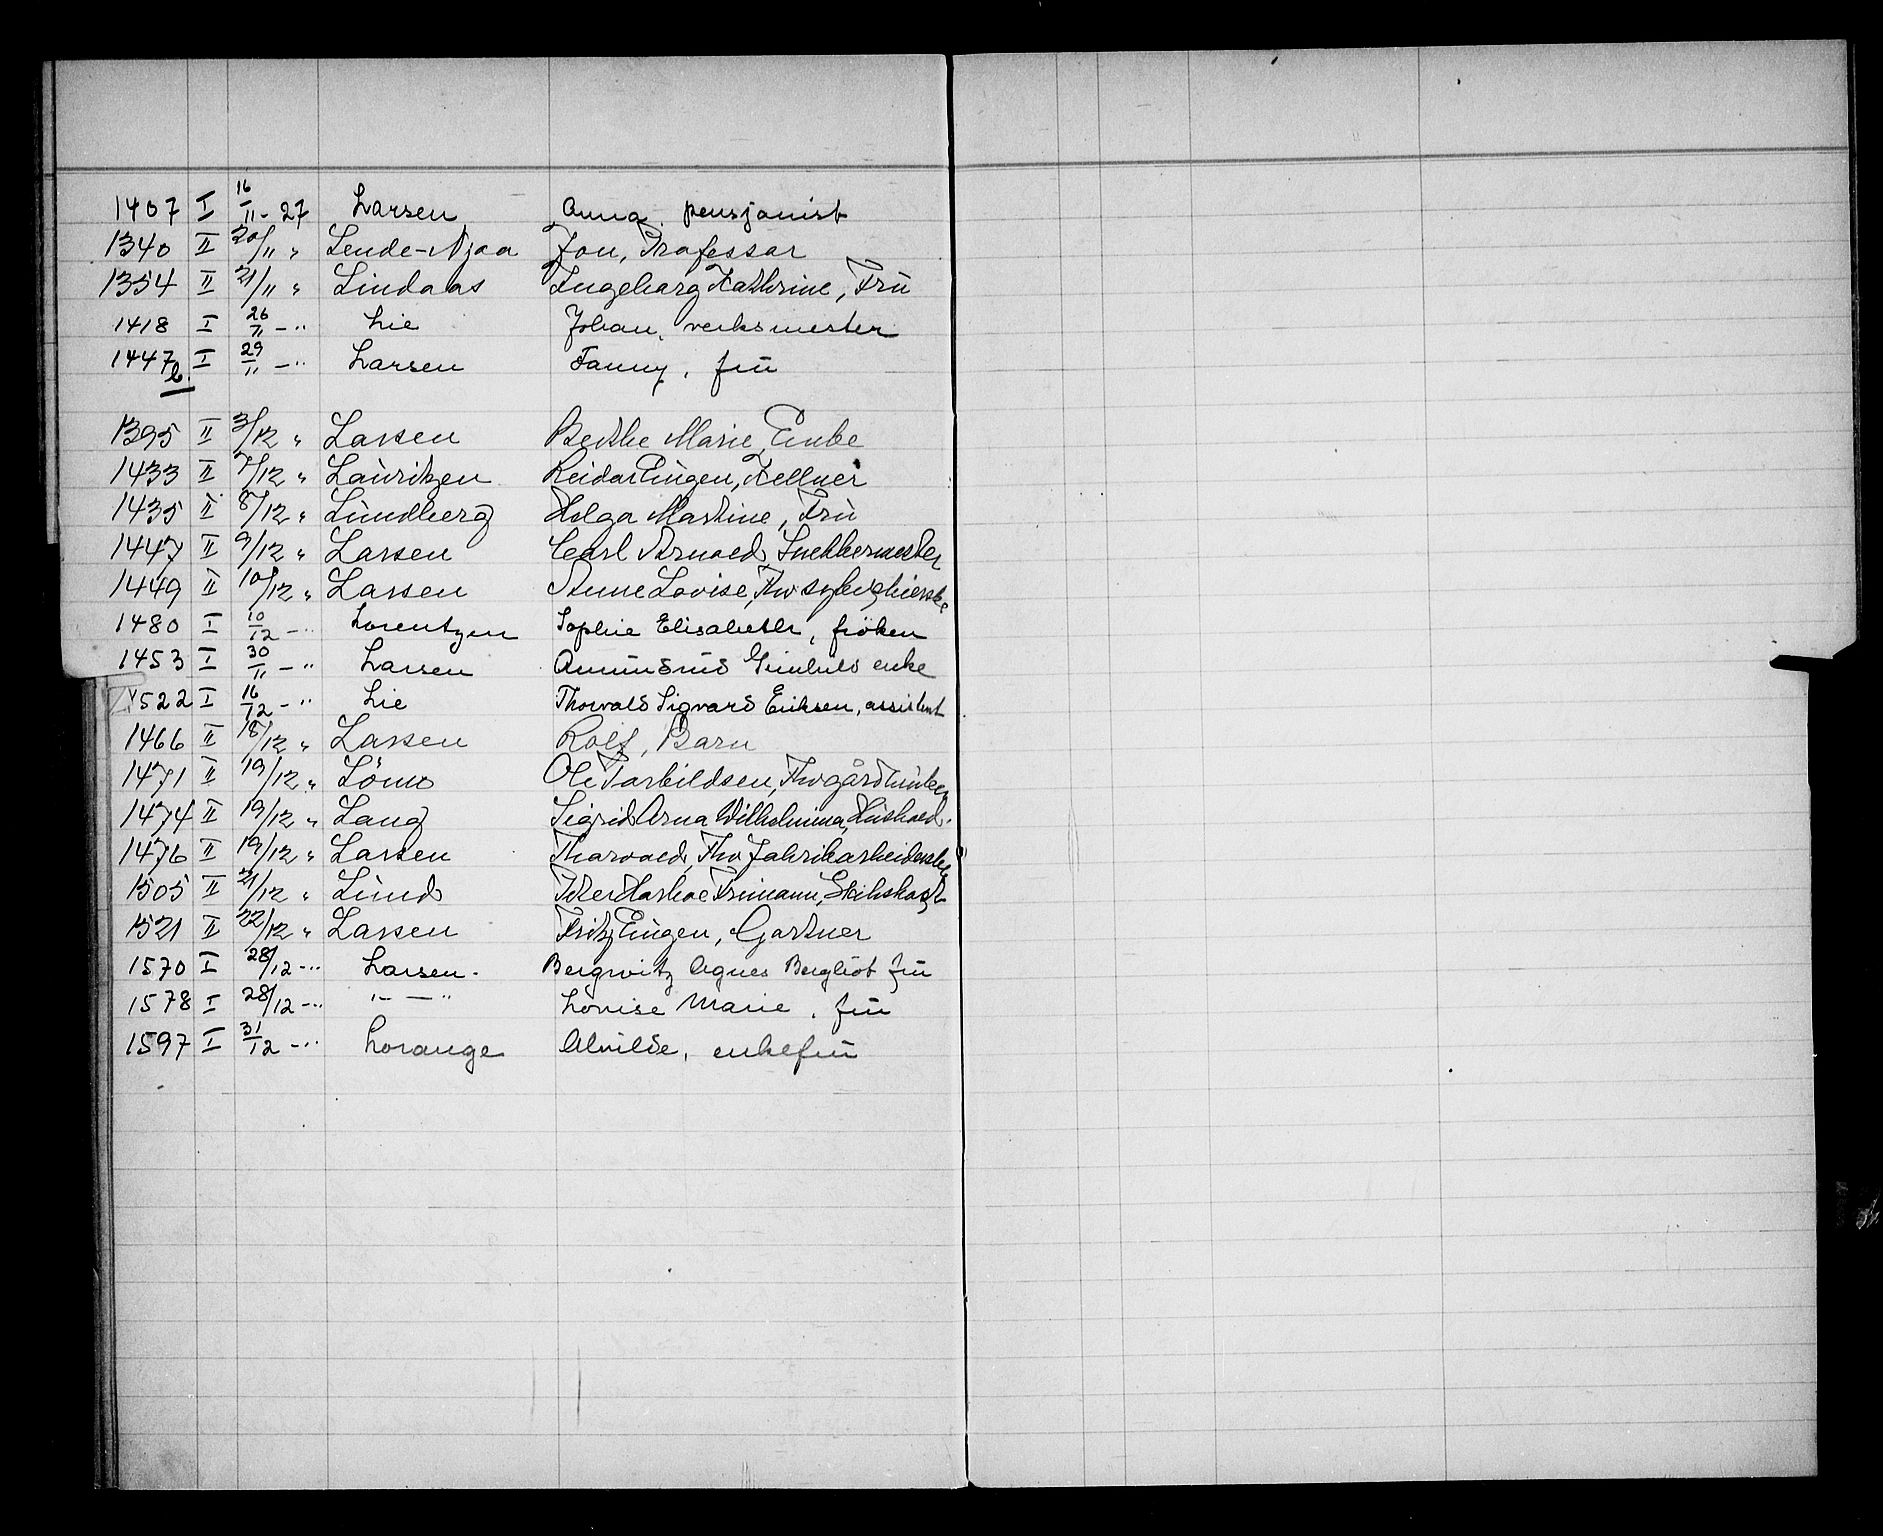 1407 I 16/11 - 27 Larsen Anna, pensjonist
1340 II 20/11 " Lende-Njaa Jon, Professor
1354 II 21/11 " Lindaas Ingeborg Kathrine, Frú
1418 I 26/11 - " Lie Johan, verksmester
1447 b. I 29/11 - " Larsen Fanny, frú
1395 II 3/12 " Larsen Berthe Marie, Enke
1433 II 7/12 " Lauritzen Reidar Eugen, Kellner
1435 II 8/12 " Lundberg Helga Martine, Frú
1447 II 9/12 " Larsen Carl Arnold, Snekkermester
1449 II 10/12 " Larsen Anne Lovise, Fhv
1480 I 10/12 - " Lorentzen Sophie Elisabeth, frøken
1453 I 30/11 - " Larsen Amundrud enke
1522 I 16/12 - " Lie Thorvald Sigvard Eriksen, assistent
1466 II 18/12 " Larsen Rolf, Barn
1471 II 19/12 " Lömo Ole Torkildsen, Fhv gårdbruker
1474 II 19/12 " Lang Sigrid Anna Wilhelmina, Hushold.
1476 II 19/12 " Larsen Thorvald, Fhv fabrikarbeiderske
1505 II 21/12 " Lund Peter Frimann, Skibskapt
1521 II 22/12 " Larsen Fritz Eugen, Gartner
1570 I 28/12 - " Larsen. Bergwitz Agnes Bergliot frú
1578 I 28/12 - " " — " Lovise Marie, frú
1597 I 31/12 - " Lorange Alvilde, enkefrú